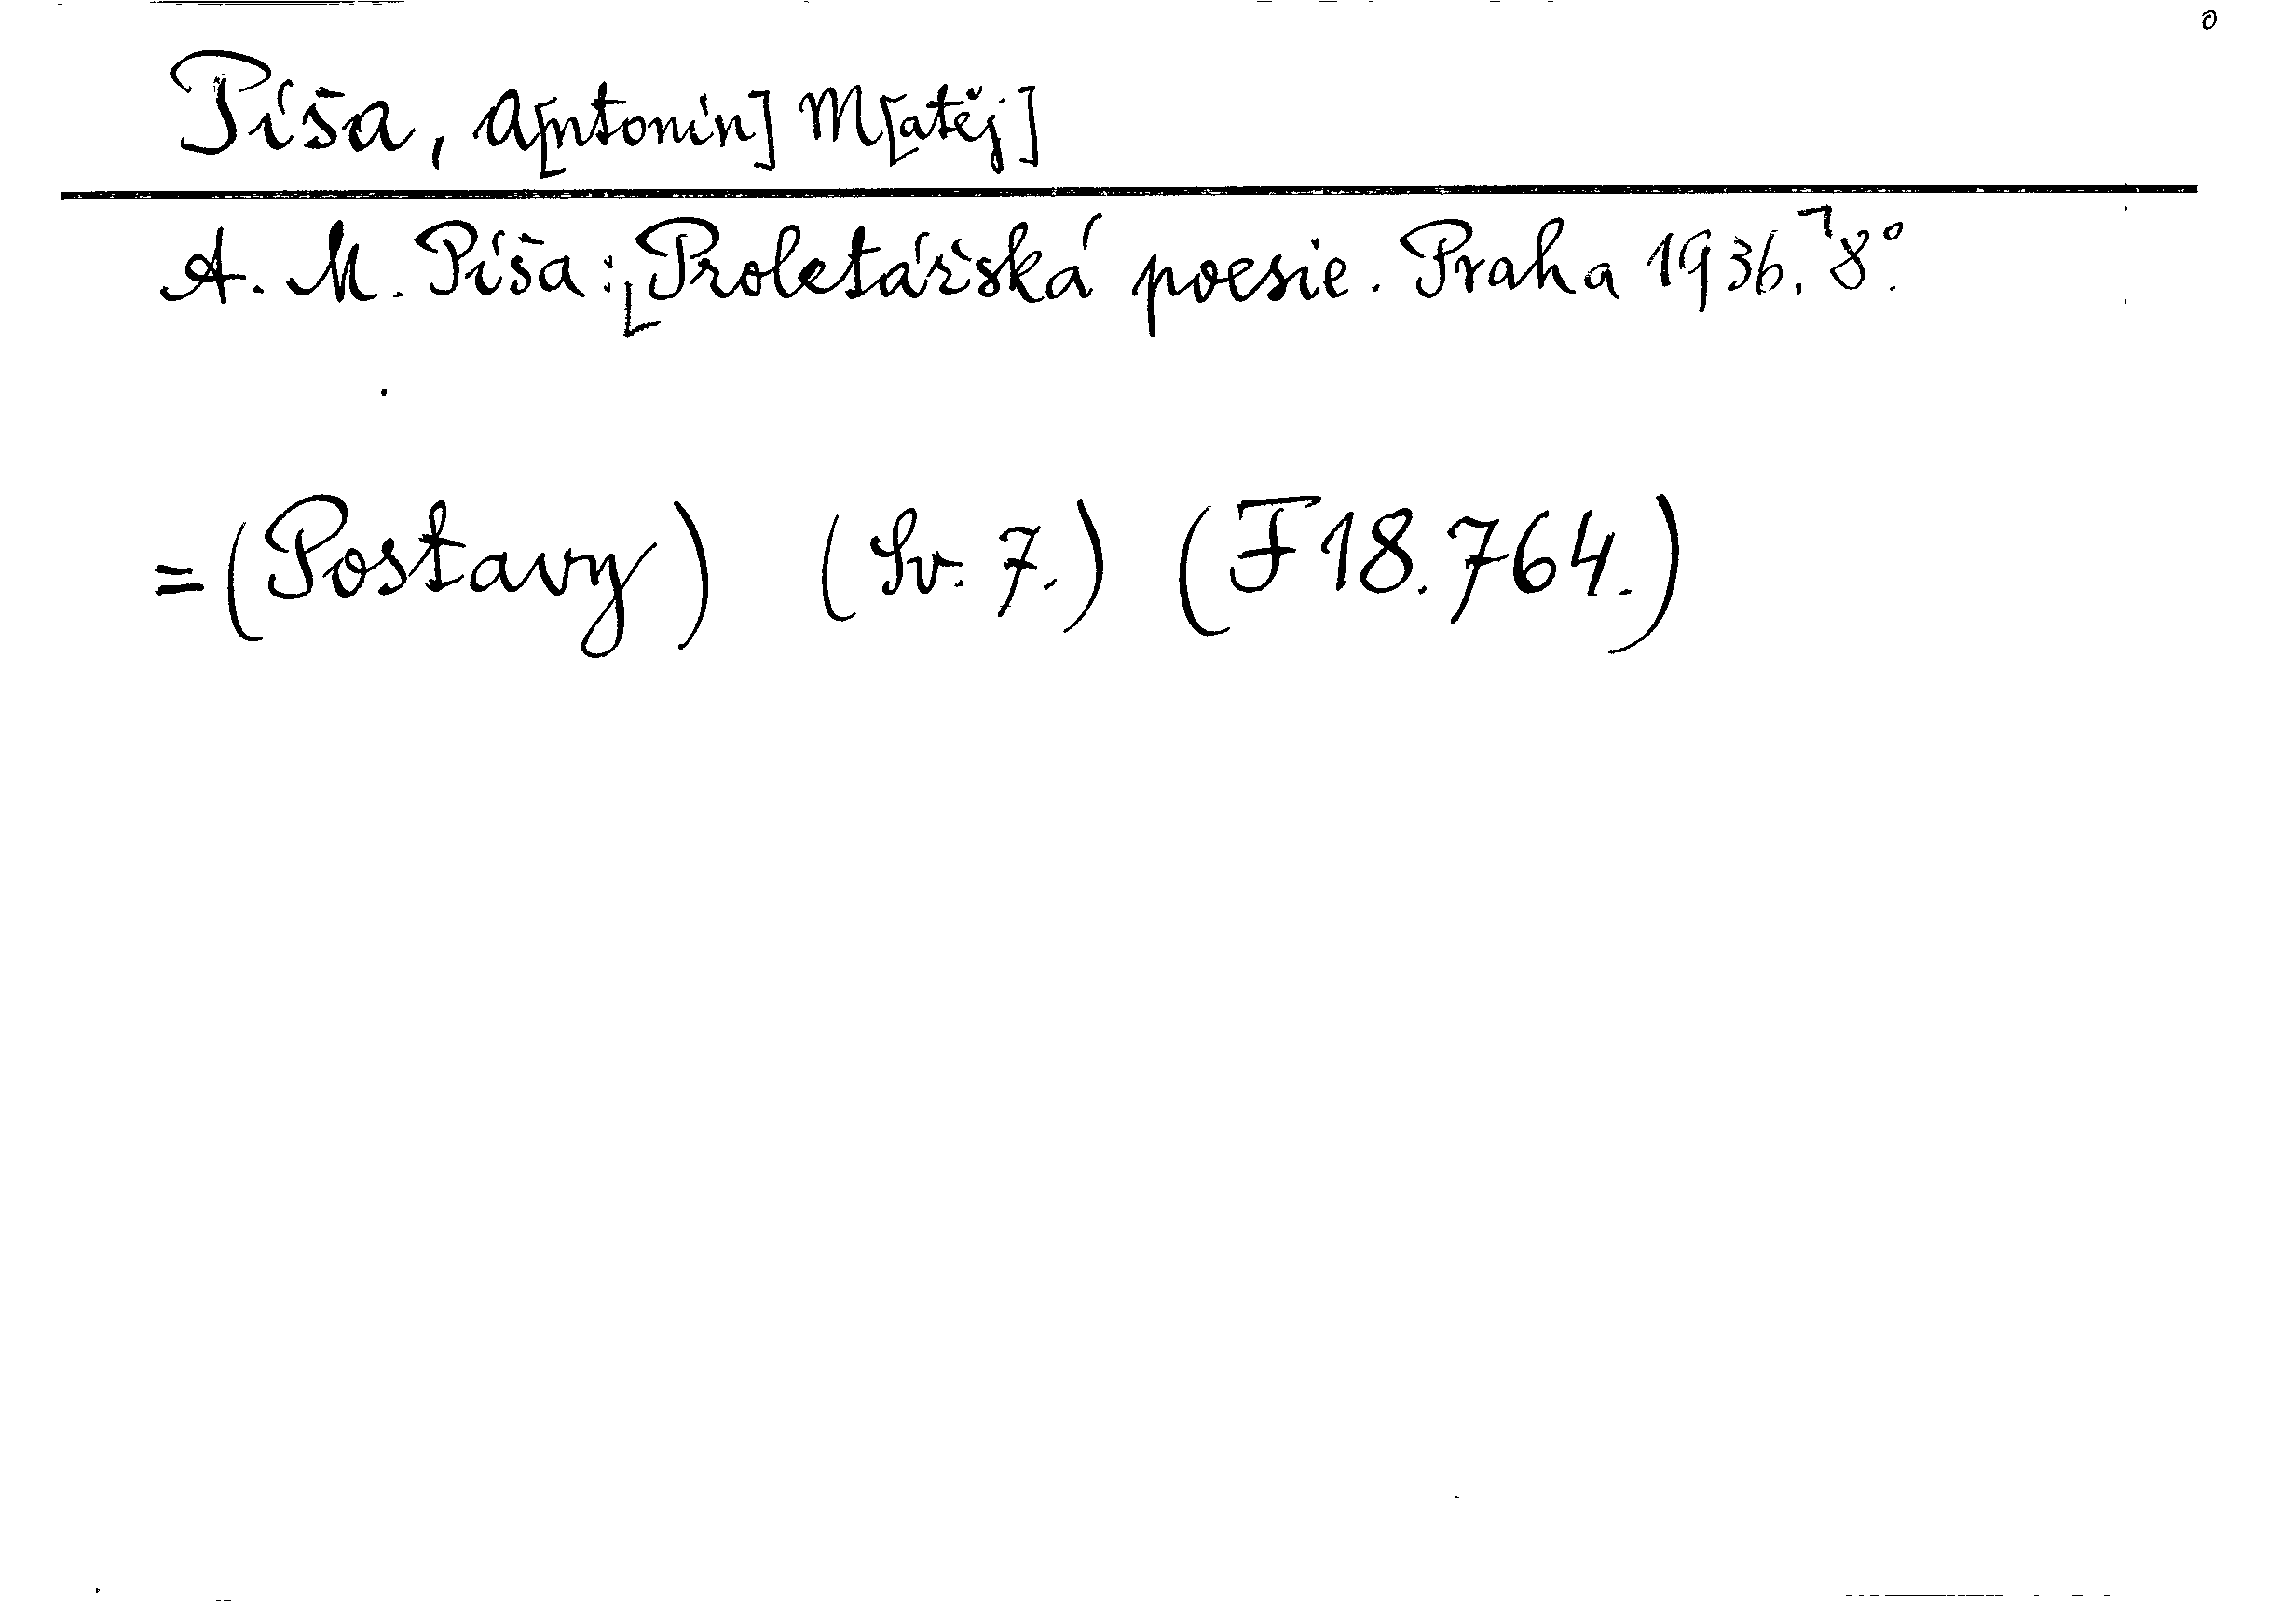 Píša, A[ntonín] M[atěj]
A. M. Píša: [Proletářská poesie. Praha 1936.] 8°.
= (Postavy) (Sv. 7.) (F 18.764.)